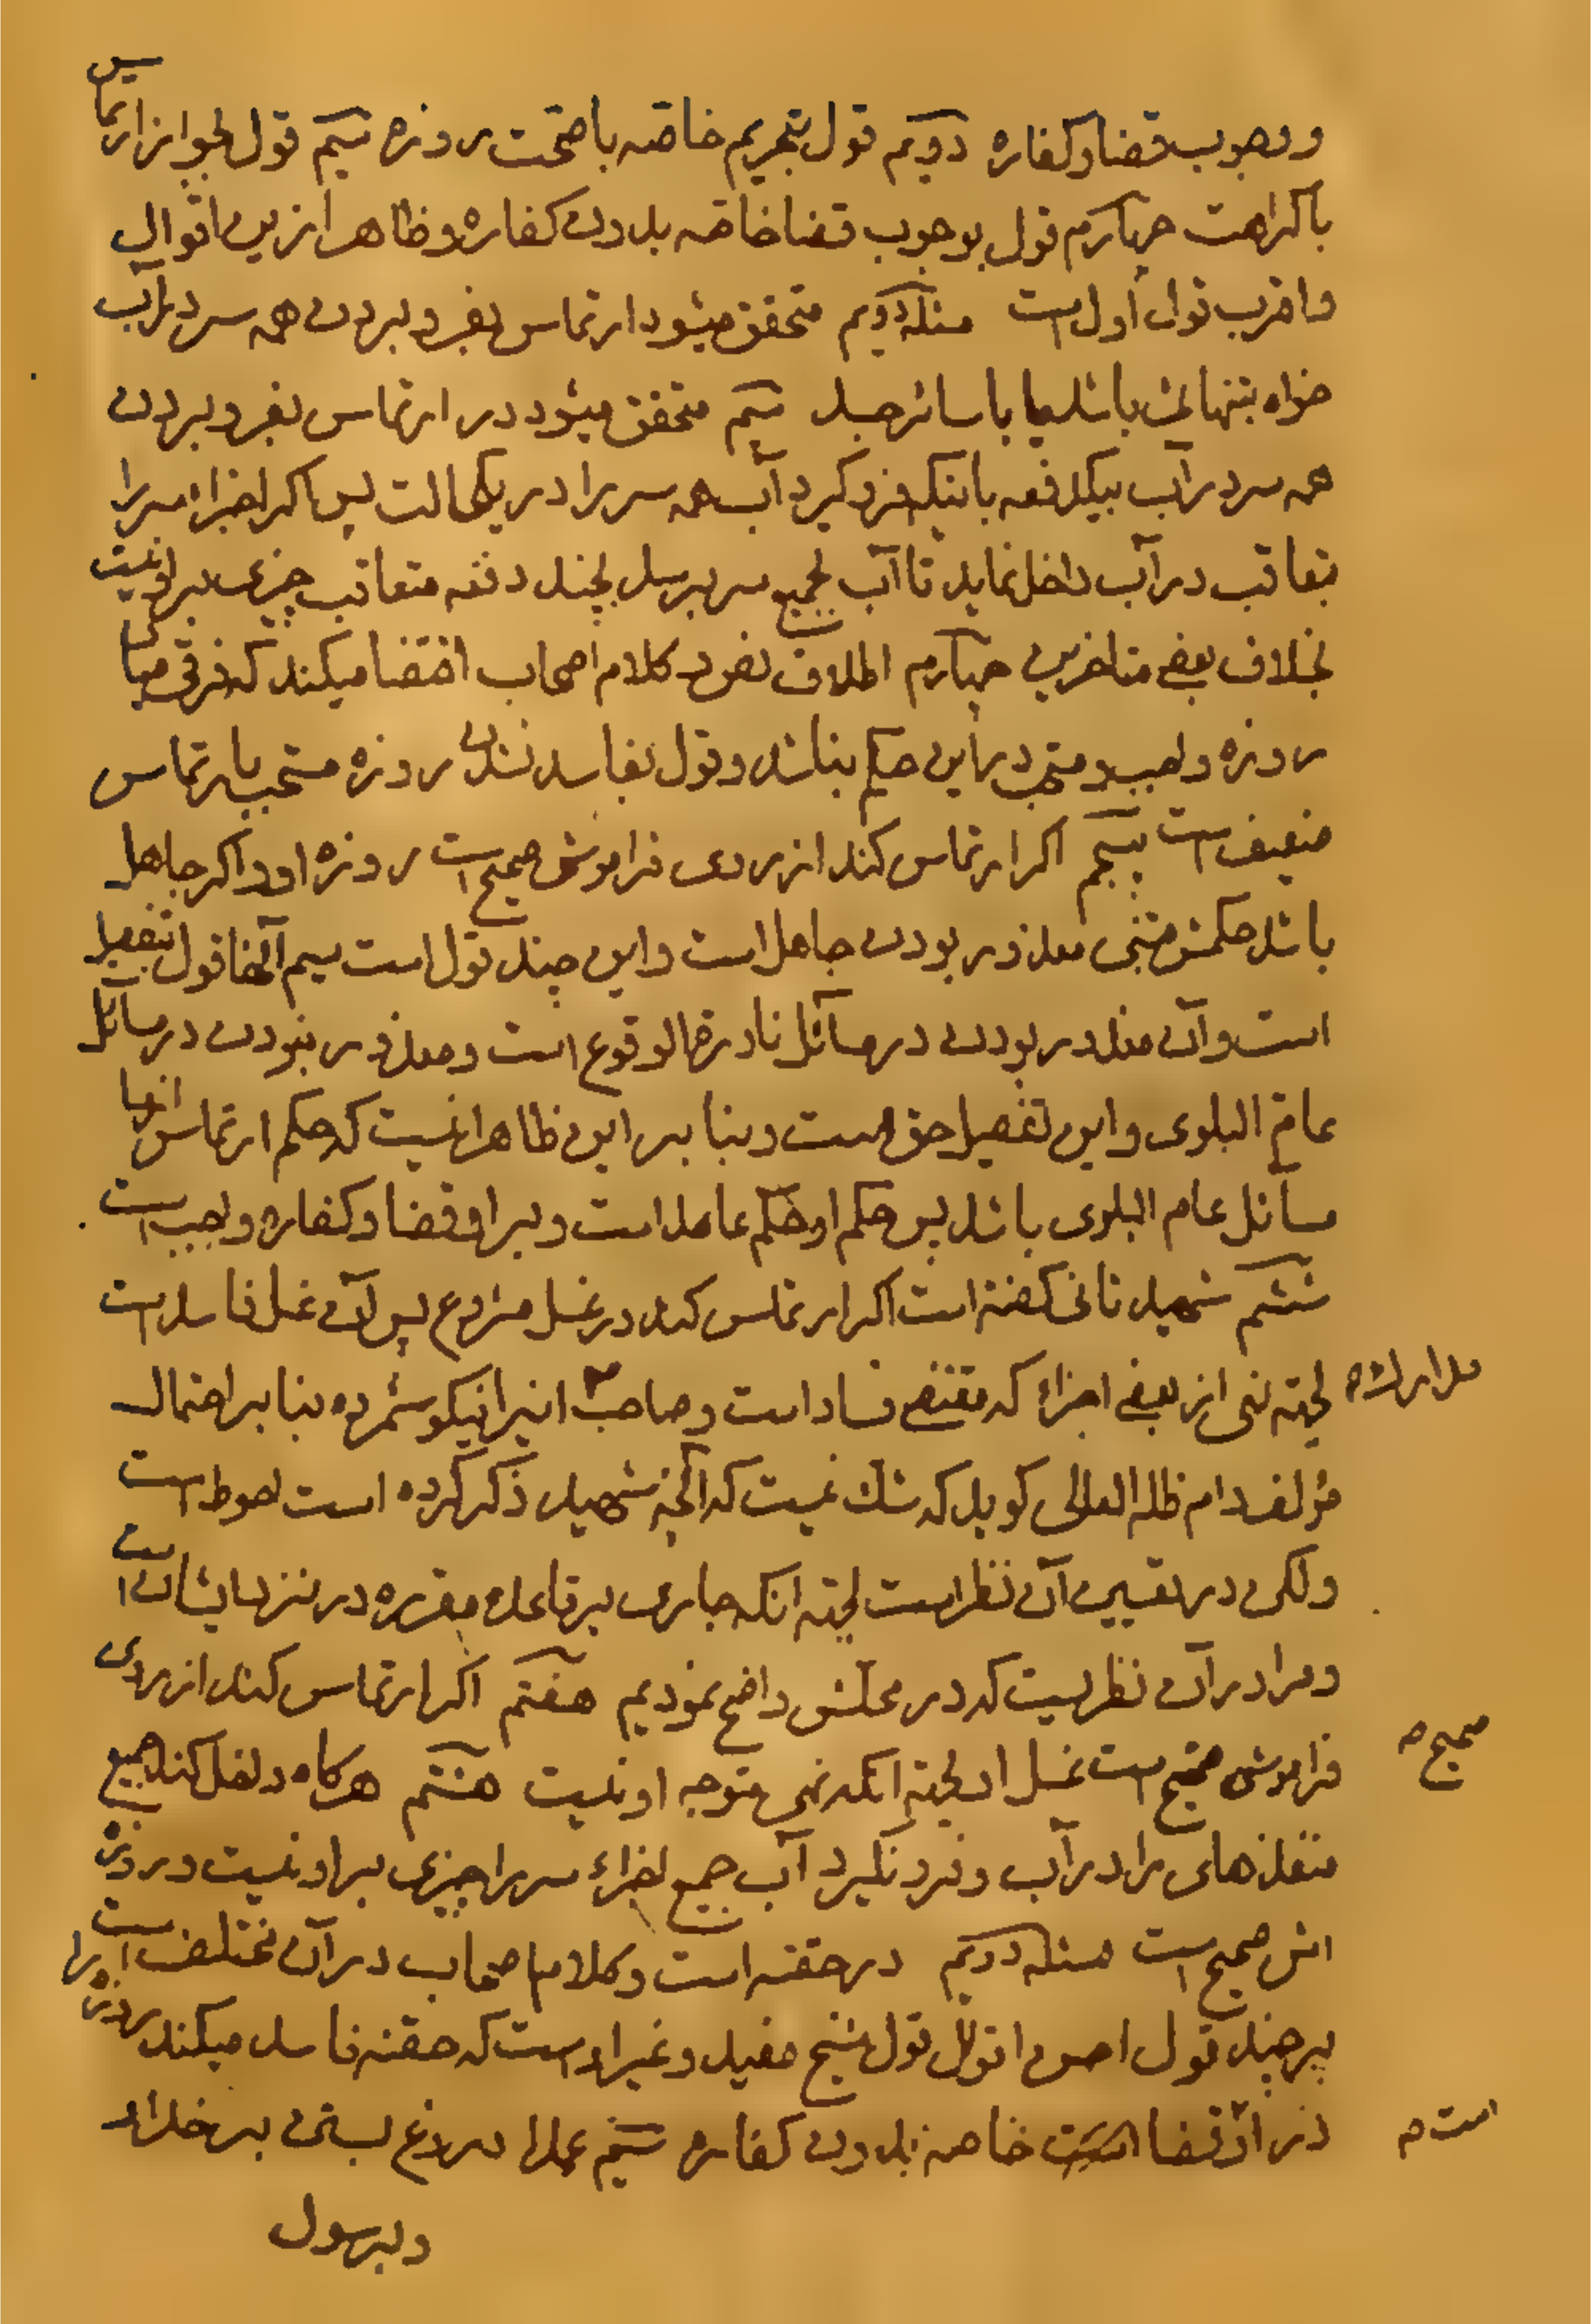 ووجوب قضا وکفاره دویم قول بتحریم خاصه با صحت روزه سیم قول بجواز ارتماس
باکراهت چهارم قول بوجوب قضا خاصه بدون کفاره وظاهر ازین اقوال
واقرب قول اول است مسئله دویم متحقق میشود ارتماس بفروبردن همه سر در آب
خواه بتنهائی باشد یا با سائر جسد سیم متحقق میشود در ارتماس بفروبردن
همه سر در آب بیکدفعه باینکه فروکیرد آب همه سر را در یکحالت پس اکر اجزاء سر را
بتعاقب در آب داخل نماید تا آب بجمیع سر برسد بچند دفعه متعاقب چیزی بر او نیست
بخلاف بعضی متاخرین چهارم اطلاق نصوص وکلام اصحاب اقتضا میکند که فرقی میان
روزه واجب ومستحب در این حکم نباشد وقول بفاسد نشدن روزه مستحب بارتماس
ضعیف است پنجم اکر ارتماس کند از روی فراموشی صحیح است روزه او واکر جاهل
باشد حکمش مبنی معذور بودن جاهل است واین چند قول است سیم آنها قول بتفصیل
است وآن معذور بودن در مسآئل نادرة الوقوع است ومعذور نبودن در مسآئل
عامة البلوی واین تفصیل حق است وبنا بر این ظاهر اینست که حکم ارتماس از
مسآئل عام البلوی باشد پس حکم او حکم عامد است وبر او قضا وکفاره واجب است
ششم شهید ثانی کفته است اکر ارتماس کند در غسل مشروع پس آن غسل فاسد است
بجهة نهی از بعضی اجزاء که مقتضی فساد است وصاحب اینرا نیکو شمرده بنا بر احتمال
مدارک ره
مؤلف دام ظله العالی کوید که شک نیست که آنچه شهید ذکر کرده است احوط است
ولکن در تعیین آن نظر است بجهة انکه جاری بر قاعده مقرره در نزد ایشان است
ومرا در آن نظریست که در محلش واضح نمودیم هفتم اکر ارتماس کند از روی
فراموشی صحیح است غسل او بجهة انکه نهی متوجه او نیست هشتم هرکاه داخل کند جمیع
صحیح م
منفذهای را در آب وفرو نکیرد آب جمیع اجزاء سر را چیزی بر او نیست وروزه
اش صحیح است مسئله دویم در حقنه است وکلام اصحاب در آن مختلف است
بر چند قول احسن اقوال قول شیخ مفید وغیر او است که حقنه فاسد میکند روزه را
ودر آن قضا است خاصة بدون کفاره سیم عمدا دروغ بستن بر خدا
است م
وبر رسول